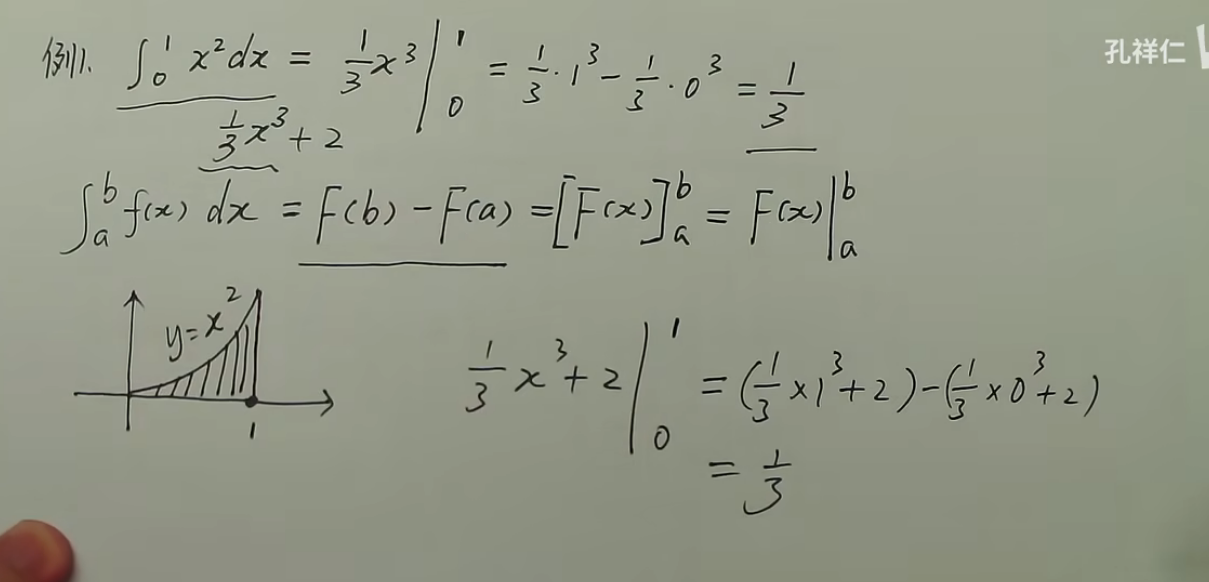 孔祥仁
例1. ∫₀¹ x²dx = 1/3 x³ |₀¹ = 1/3 · 1³ - 1/3 · 0³ = 1/3
1/3 x³ + 2
∫ₐᵇ f(x) dx = F(b) - F(a) = [F(x)]ₐᵇ = F(x)|ₐᵇ
y=x²
1
1/3 x³ + 2 |₀¹ = (1/3 × 1³ + 2) - (1/3 × 0³ + 2)
= 1/3